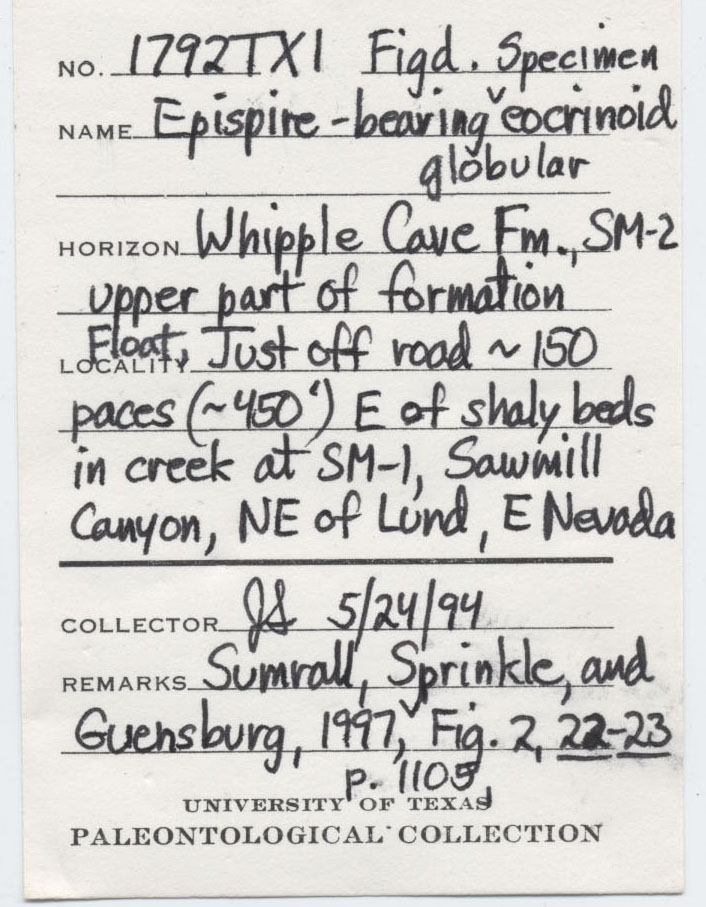 NO. 1792TX1 Figd. Specimen
NAME Epispire-bearing ˅ eocrinoid
globular
HORIZON Whipple Cave Fm., SM-2
upper part of formation
LOCALITY Float, Just off road ~150
paces (~450') E of shaly beds
in creek at SM-1, Sawmill
Canyon, NE of Lund, E Nevada
COLLECTOR JS 5/24/94
REMARKS Sumrall, Sprinkle, and
Guensburg, 1997, ˅ Fig. 2, 22-23
p. 1105,
UNIVERSITY OF TEXAS
PALEONTOLOGICAL COLLECTION